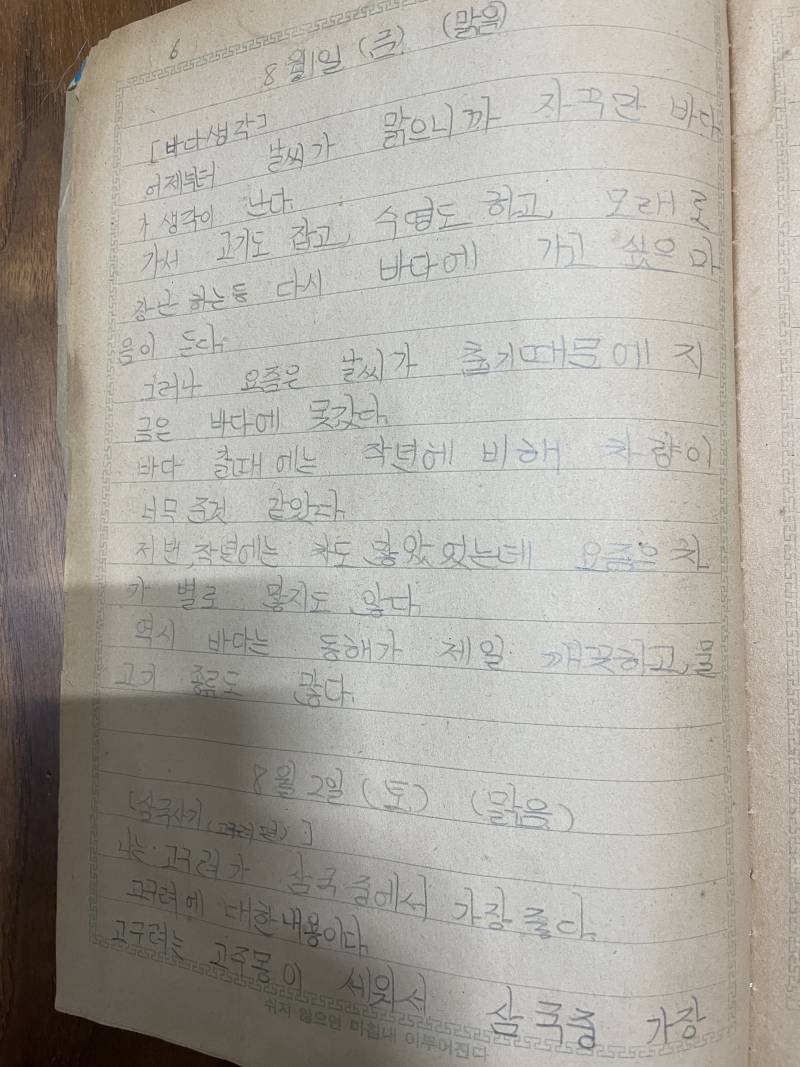 6
8월 1일 (금) (맑음)
[바다생각]
어제부터 날씨가 맑으니까 자꾸만 바다
가 생각이 난다.
가서 고기도 잡고, 수영도 하고, 모래로
장난 하는등 다시 바다에 가고 싶은 마
음이 든다.
그러나 요즘은 날씨가 춥기때문에 지
금은 바다에 못갔다.
바다 갈때에는 작년에 비해 차량이
너무 준것 같았다.
저번, 작년에는 차도 많았었는데 요즘은 차
가 별로 많지도 않다.
역시 바다는 동해가 제일 깨끗하고, 물
고기 종류도 많다.
8월 2일 (토) (맑음)
[삼국사기 (고구려 편)]
나는 고구려가 삼국 중에서 가장 좋다.
고구려에 대한 내용이다.
고구려는 고주몽이 세워서 삼국중 가장
쉬지 않으면 마침내 이루어진다